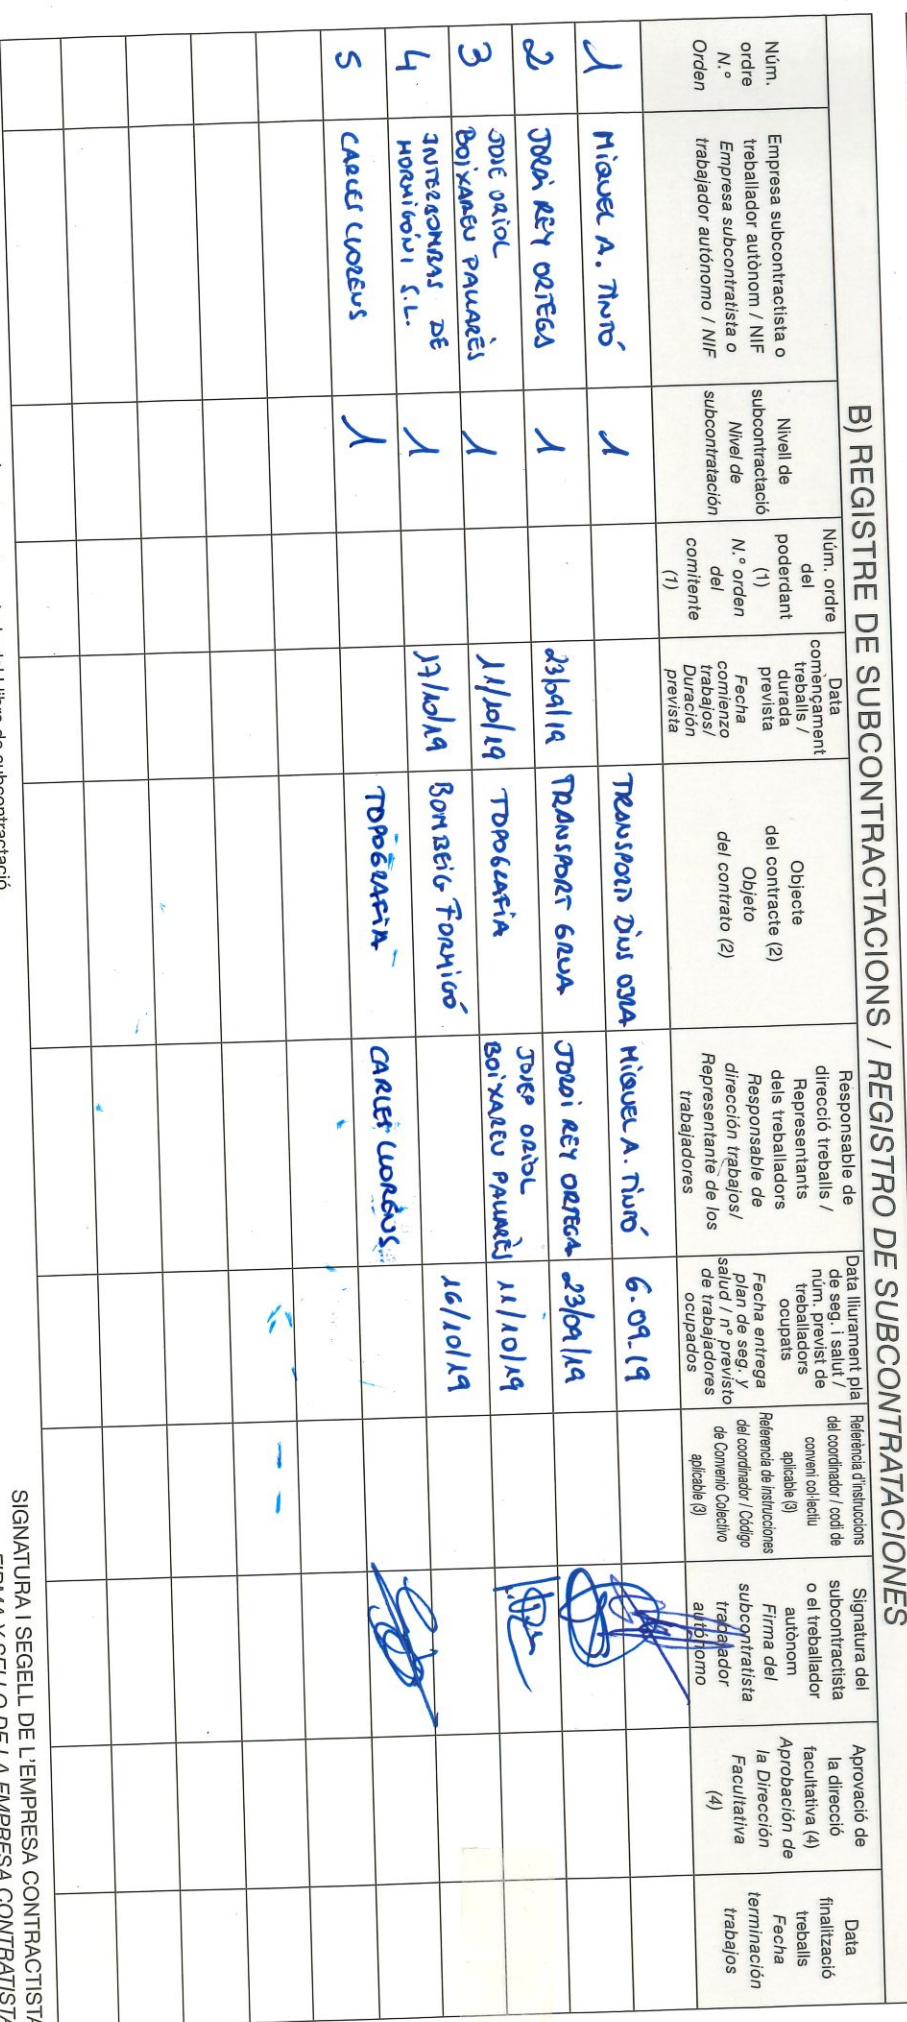 B) REGISTRE DE SUBCONTRACTACIONS / REGISTRO DE SUBCONTRATACIONES
Núm.
ordre
N.º
Orden
Empresa subcontractista o
treballador autònom / NIF
Empresa subcontratista o
trabajador autónomo / NIF
Nivell de
subcontractació
Nivel de
subcontratación
Núm. ordre
del
poderdant
(1)
N.º orden
del
comitente
(1)
Data
començament
treballs /
durada
prevista
Fecha
comienzo
trabajos/
Duración
prevista
Objecte
del contracte (2)
Objeto
del contrato (2)
Responsable de
direcció treballs /
Representants
dels treballadors
Responsable de
dirección trabajos/
Representante de los
trabajadores
Data lliurament pla
de seg. i salut /
núm. previst de
treballadors
ocupats
Fecha entrega
plan de seg. y
salud / nº previsto
de trabajadores
ocupados
Referència d'instruccions
del coordinador / codi de
conveni col·lectiu
aplicable (3)
Referencia de instrucciones
del coordinador / Código
de Convenio Colectivo
aplicable (3)
Signatura del
subcontractista
o el treballador
autònom
Firma del
subcontratista
trabajador
autónomo
Aprovació de
la direcció
facultativa (4)
Aprobación de
la Dirección
Facultativa
(4)
Data
finalització
treballs
Fecha
terminación
trabajos
1 MIQUEL A. TINTÓ 1 TRANSPORT DINS OBRA MIQUEL A. TINTÓ 6-09-19
2 JORDI REY ORTEGA 1 23/09/19 TRANSPORT GRUA JORDI REY ORTEGA 23/09/19
3 JOSE ORIOL
BOIXAREU PALLARÈS 1 11/10/19 TOPOGRAFIA JOSEP ORIOL
BOIXAREU PALLARÈS 11/10/19
4 INTERBOMBAS DE
HORMIGÓN S.L. 1 17/10/19 BOMBEIG FORMIGÓ 16/10/19
5 CARLES LLORENS 1 TOPOGRAFIA CARLES LLORENS
llibre de subcontractació
SIGNATURA I SEGELL DE L'EMPRESA CONTRACTISTA
FIRMA Y SELLO DE LA EMPRESA CONTRATISTA